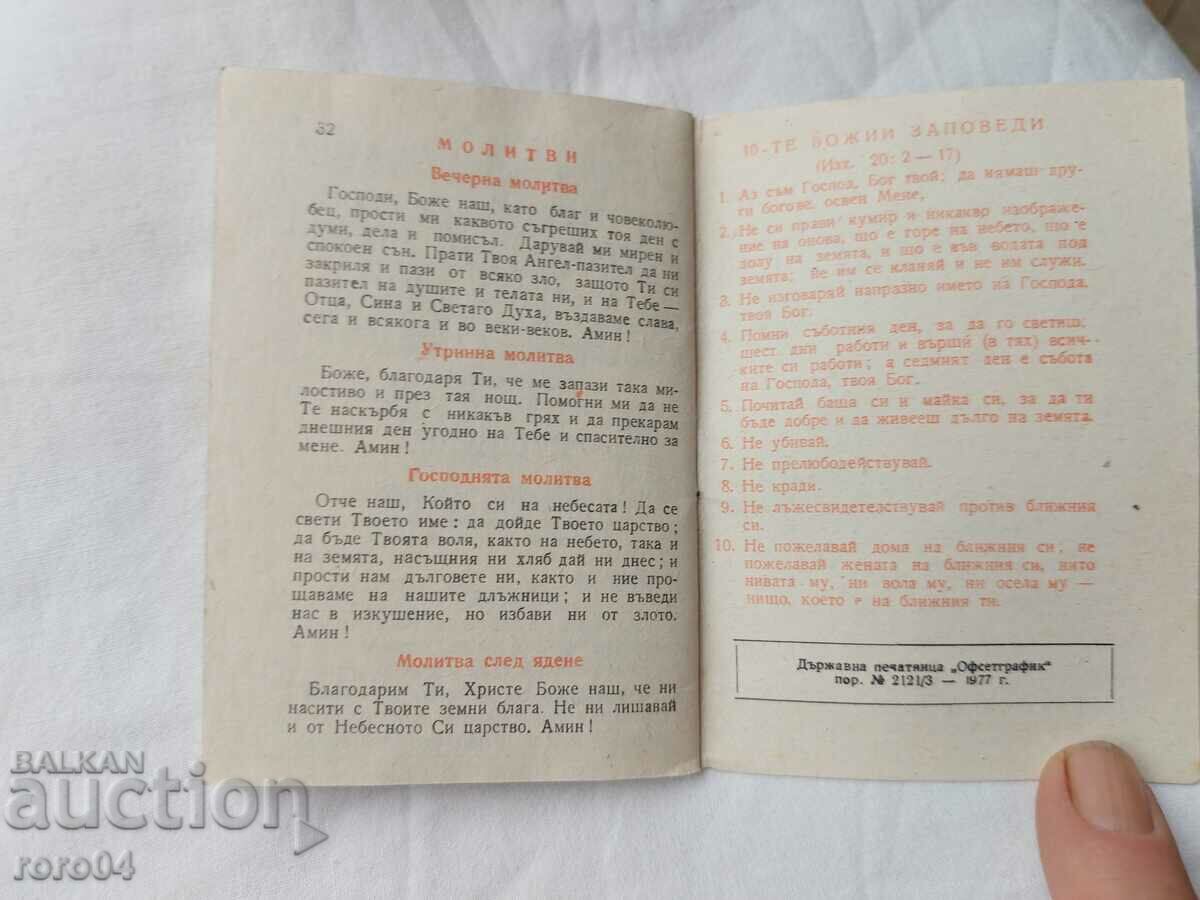 32
МОЛИТВИ
Вечерна молитва
Господи, Боже наш, като благ и човеколю-
бец, прости ми каквото съгреших тоя ден с
думи, дела и помисъл. Дарувай ми мирен и
спокоен сън. Прати Твоя Ангел-пазител да ни
закриля и пази от всяко зло, защото Ти си
пазител на душите и телата ни, и на Тебе —
Отца, Сина и Светаго Духа, въздаваме слава,
сега и всякога и во веки-веков. Амин!
Утринна молитва
Боже, благодаря Ти, че ме запази така ми-
лостиво и през тая нощ. Помогни ми да не
Те наскърбя с никакъв грях и да прекарам
днешния ден угодно на Тебе и спасително за
мене. Амин!
Господнята молитва
Отче наш, Който си на небесата! Да се
свети Твоето име: да дойде Твоето царство;
да бъде Твоята воля, както на небето, така и
на земята, насъщния ни хляб дай ни днес; и
прости нам дълговете ни, както и ние про-
щаваме на нашите длъжници; и не въведи
нас в изкушение, но избави ни от злото.
Амин!
Молитва след ядене
Благодарим Ти, Христе Боже наш, че ни
насити с Твоите земни блага. Не ни лишавай
и от Небесното Си царство. Амин!
10-ТЕ БОЖИИ ЗАПОВЕДИ
(Изх. 20: 2—17)
1. Аз съм Господ, Бог твой; да нямаш дру-
ги богове, освен Мене,
2. Не си прави кумир и никакво изображе-
ние на онова, що е горе на небето, що е
долу на земята, и що е във водата под
земята; не им се кланяй и не им служи.
3. Не изговаряй напразно името на Господа,
твоя Бог.
4. Помни съботния ден, за да го светиш;
шест дни работи и върши (в тях) всич-
ките си работи; а седмият ден е събота
на Господа, твоя Бог.
5. Почитай баща си и майка си, за да ти
бъде добре и да живееш дълго на земята.
6. Не убивай.
7. Не прелюбодействувай.
8. Не кради.
9. Не лъжесвидетелствувай против ближния
си.
10. Не пожелавай дома на ближния си; не
пожелавай жената на ближния си, нито
нивата му, ни вола му, ни осела му —
нищо, което е на ближния ти.
Държавна печатница „Офсетграфик“
пор. № 2121/3 — 1977 г.
BALKAN
auction
roro04